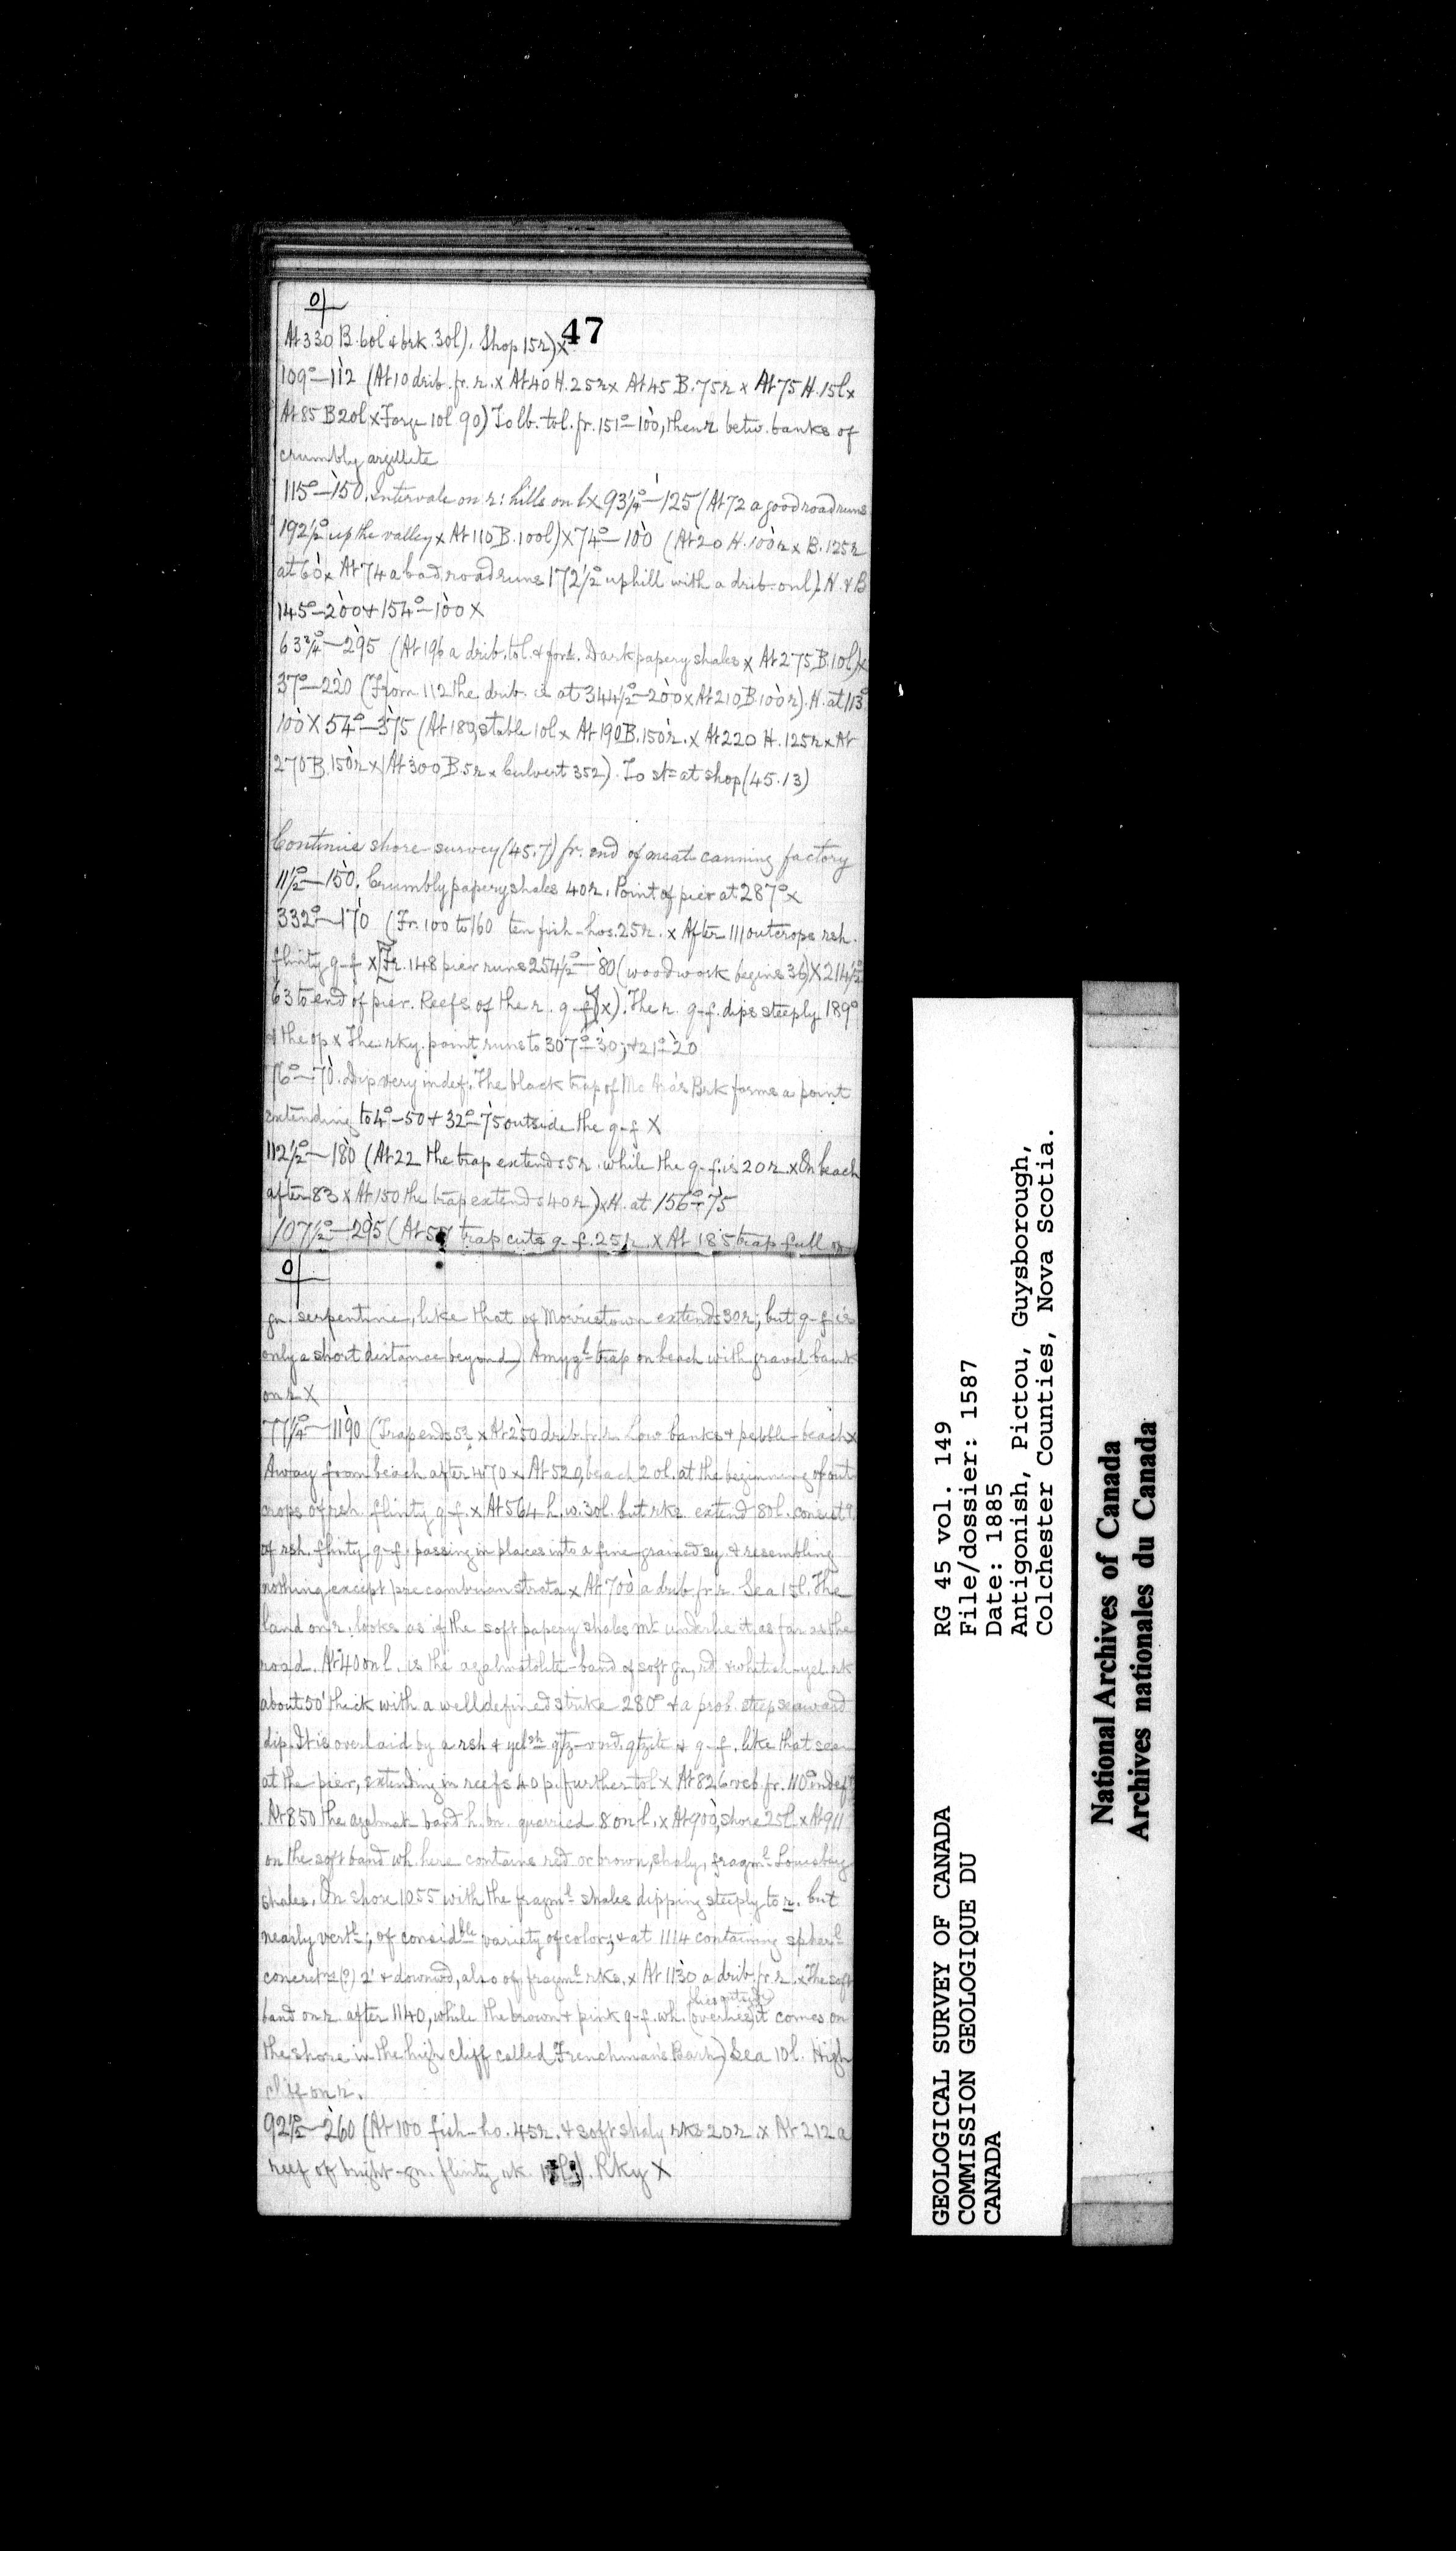 47
At 330 B. 60l & brk. 30l). Shop 15r) x
109° — 112 (At 10 drib. fr. r. x At 40 H. 25r x At 45 B. 75r x At 75 H. 15l x
At 85 B 20l x Forge 10l 90) To lb. tol. fr. 151° — 100, then r betw. banks of
crumbly argillite
115° — 150. Intervale on r: hills on l x 93¼° — 125 (At 72 a good road runs
192½° up the valley x At 110 B. 100l) x 74° — 100 (At 20 H. 100r x B. 125r
at 60 x At 74 a bad road runs 172½° uphill with a drib. on l). H. & B
145° — 200 & 154° — 100 X
63¾° — 295 (At 196 a drib. tol. & fork. Dark papery shales x At 275 B. 10l) x
37° — 220 (From 112 the drib. is at 344½° — 200 x At 210 B. 100r). H. at 113°
100 X 54° — 375 (At 180, stable 10l x At 190 B. 150r. x At 220 H. 125r x At
270 B. 150r x At 300 B. 5r x Culvert 352). To st= at shop (45.13)
Continue shore-survey (45.7) fr. end of meat canning factory
11½° — 150. Crumbly papery shales 40r. Point of pier at 287° x
332° — 170 (Fr. 100 to 160 ten fish-hos. 25r. x After 111 outcrops rsh.
flinty q-f x [Fr. 148 pier runs 254½° — 80 (woodwork begins 36) X 214½°
63 to end of pier. Reefs of the r. q-f] x). The r. q-f. dips steeply 189°
the op x The rky. point runs to 307° — 30; & 21° — 20
76° — 70. Dip very indef. The black trap of Mc Ara's Brk forms a point
extending to 4° — 50 & 32° — 75 outside the q-f X
112½° — 180 (At 22 the trap extends 5r. while the q-f. is 20r. x On beach
after 83 x At 150 the trap extends 40r) x H. at 156° — 75
107½° — 295 (At 57 trap cuts q-f. 25r. x At 185 trap full
gn. serpentine, like that of Morristown extends 30r; but q-f is
only a short distance beyond) Amygl trap on beach with gravel bank
on r X
77¼° — 1190 (Trap ends 53 x At 250 drib. fr. r. Low banks & pebble-beach x
Away from beach after 470 x At 520, beach 20l. at the beginning of out
crops of rsh. flinty q-f. x At 564 h. w. 30l. but rks. extend 80l. consist
of rsh. flinty q-f. passing in places into a fine grained sy. & resembling
nothing except precambrian strata x At 700 a drib. fr. r. Sea 15l. The
land on r. looks as if the soft papery shales mt. underlie it, as far as the
road. At 740 on l. is the agalmatolite-band of soft gn, rd. & whitish-yel. rk
about 50' thick with a well defined strike 280° & a prob. steep seaward
dip. It is overlaid by a rsh & yelsh qtz-vnd. qtzite & q-f. like that seen
at the pier, extending in reefs 40 p. further tol x At 826 vcb. fr. 110° indef
At 850 the agalmat. band h. bn. quarried 8 on l. x At 900, shore 25l. x At 911
on the soft band wh. here contains red or brown, shaly, fragml Louisburg
shales. On shore 1055 with the fragml shales dipping steeply to r. but
nearly vertl; of considble variety of color; & at 1114 containing spherl
concretns (?) 2' & downwd, also of fragml rks. x At 1130 a drib. fr. r. x The soft
band on r. after 1140, while the brown & pink q-f. wh. (overlies) it comes on
(lies outside)
the shore in the high cliff called Frenchman's Barn) Sea 10l. High
cliff on r.
92½° — 260 (At 100 fish-ho. 45r. & soft shaly rks 20r. x At 212 a
reef of bright-gn. flinty rk. Rky X
GEOLOGICAL SURVEY OF CANADA
COMMISSION GEOLOGIQUE DU
CANADA
RG 45 vol. 149
File/dossier: 1587
Date: 1885
Antigonish, Pictou, Guysborough,
Colchester Counties, Nova Scotia.
National Archives of Canada
Archives nationales du Canada